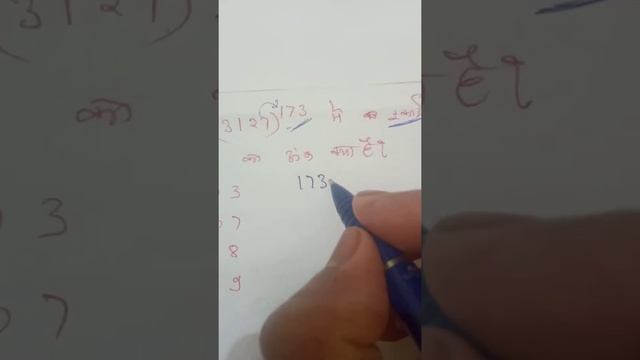 (3127)²173 में का इकाई
का अंक क्या है?
3 173
7
8
9